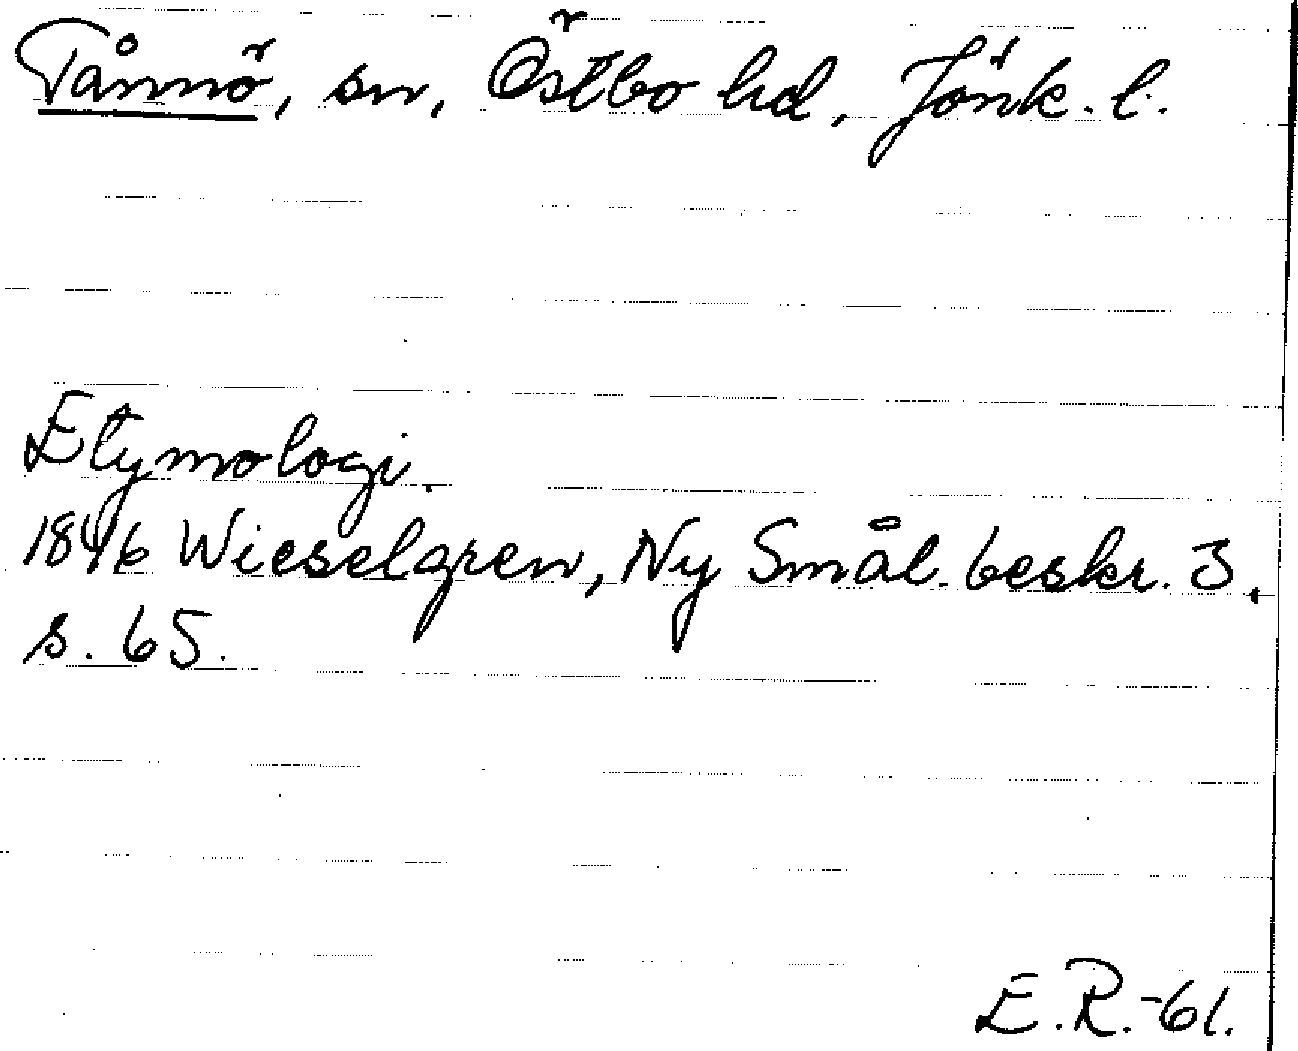 Tånnö, sn, Östbo hd, Jönk. l.
Etymologi.
1846 Wieselgren, Ny Smål. beskr. 3,
s. 65.
E.R.-61.